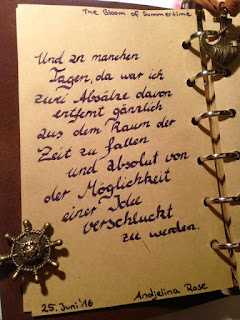 The Bloom of Summertime
Und an manchen
Tagen, da war ich
zwei Absätze davon
entfernt gänzlich
aus dem Raum der
Zeit zu fallen
und absolut von
der Möglichkeit
einer Idee
verschluckt
zu werden.
25. Juni '16
Andjelina Rose